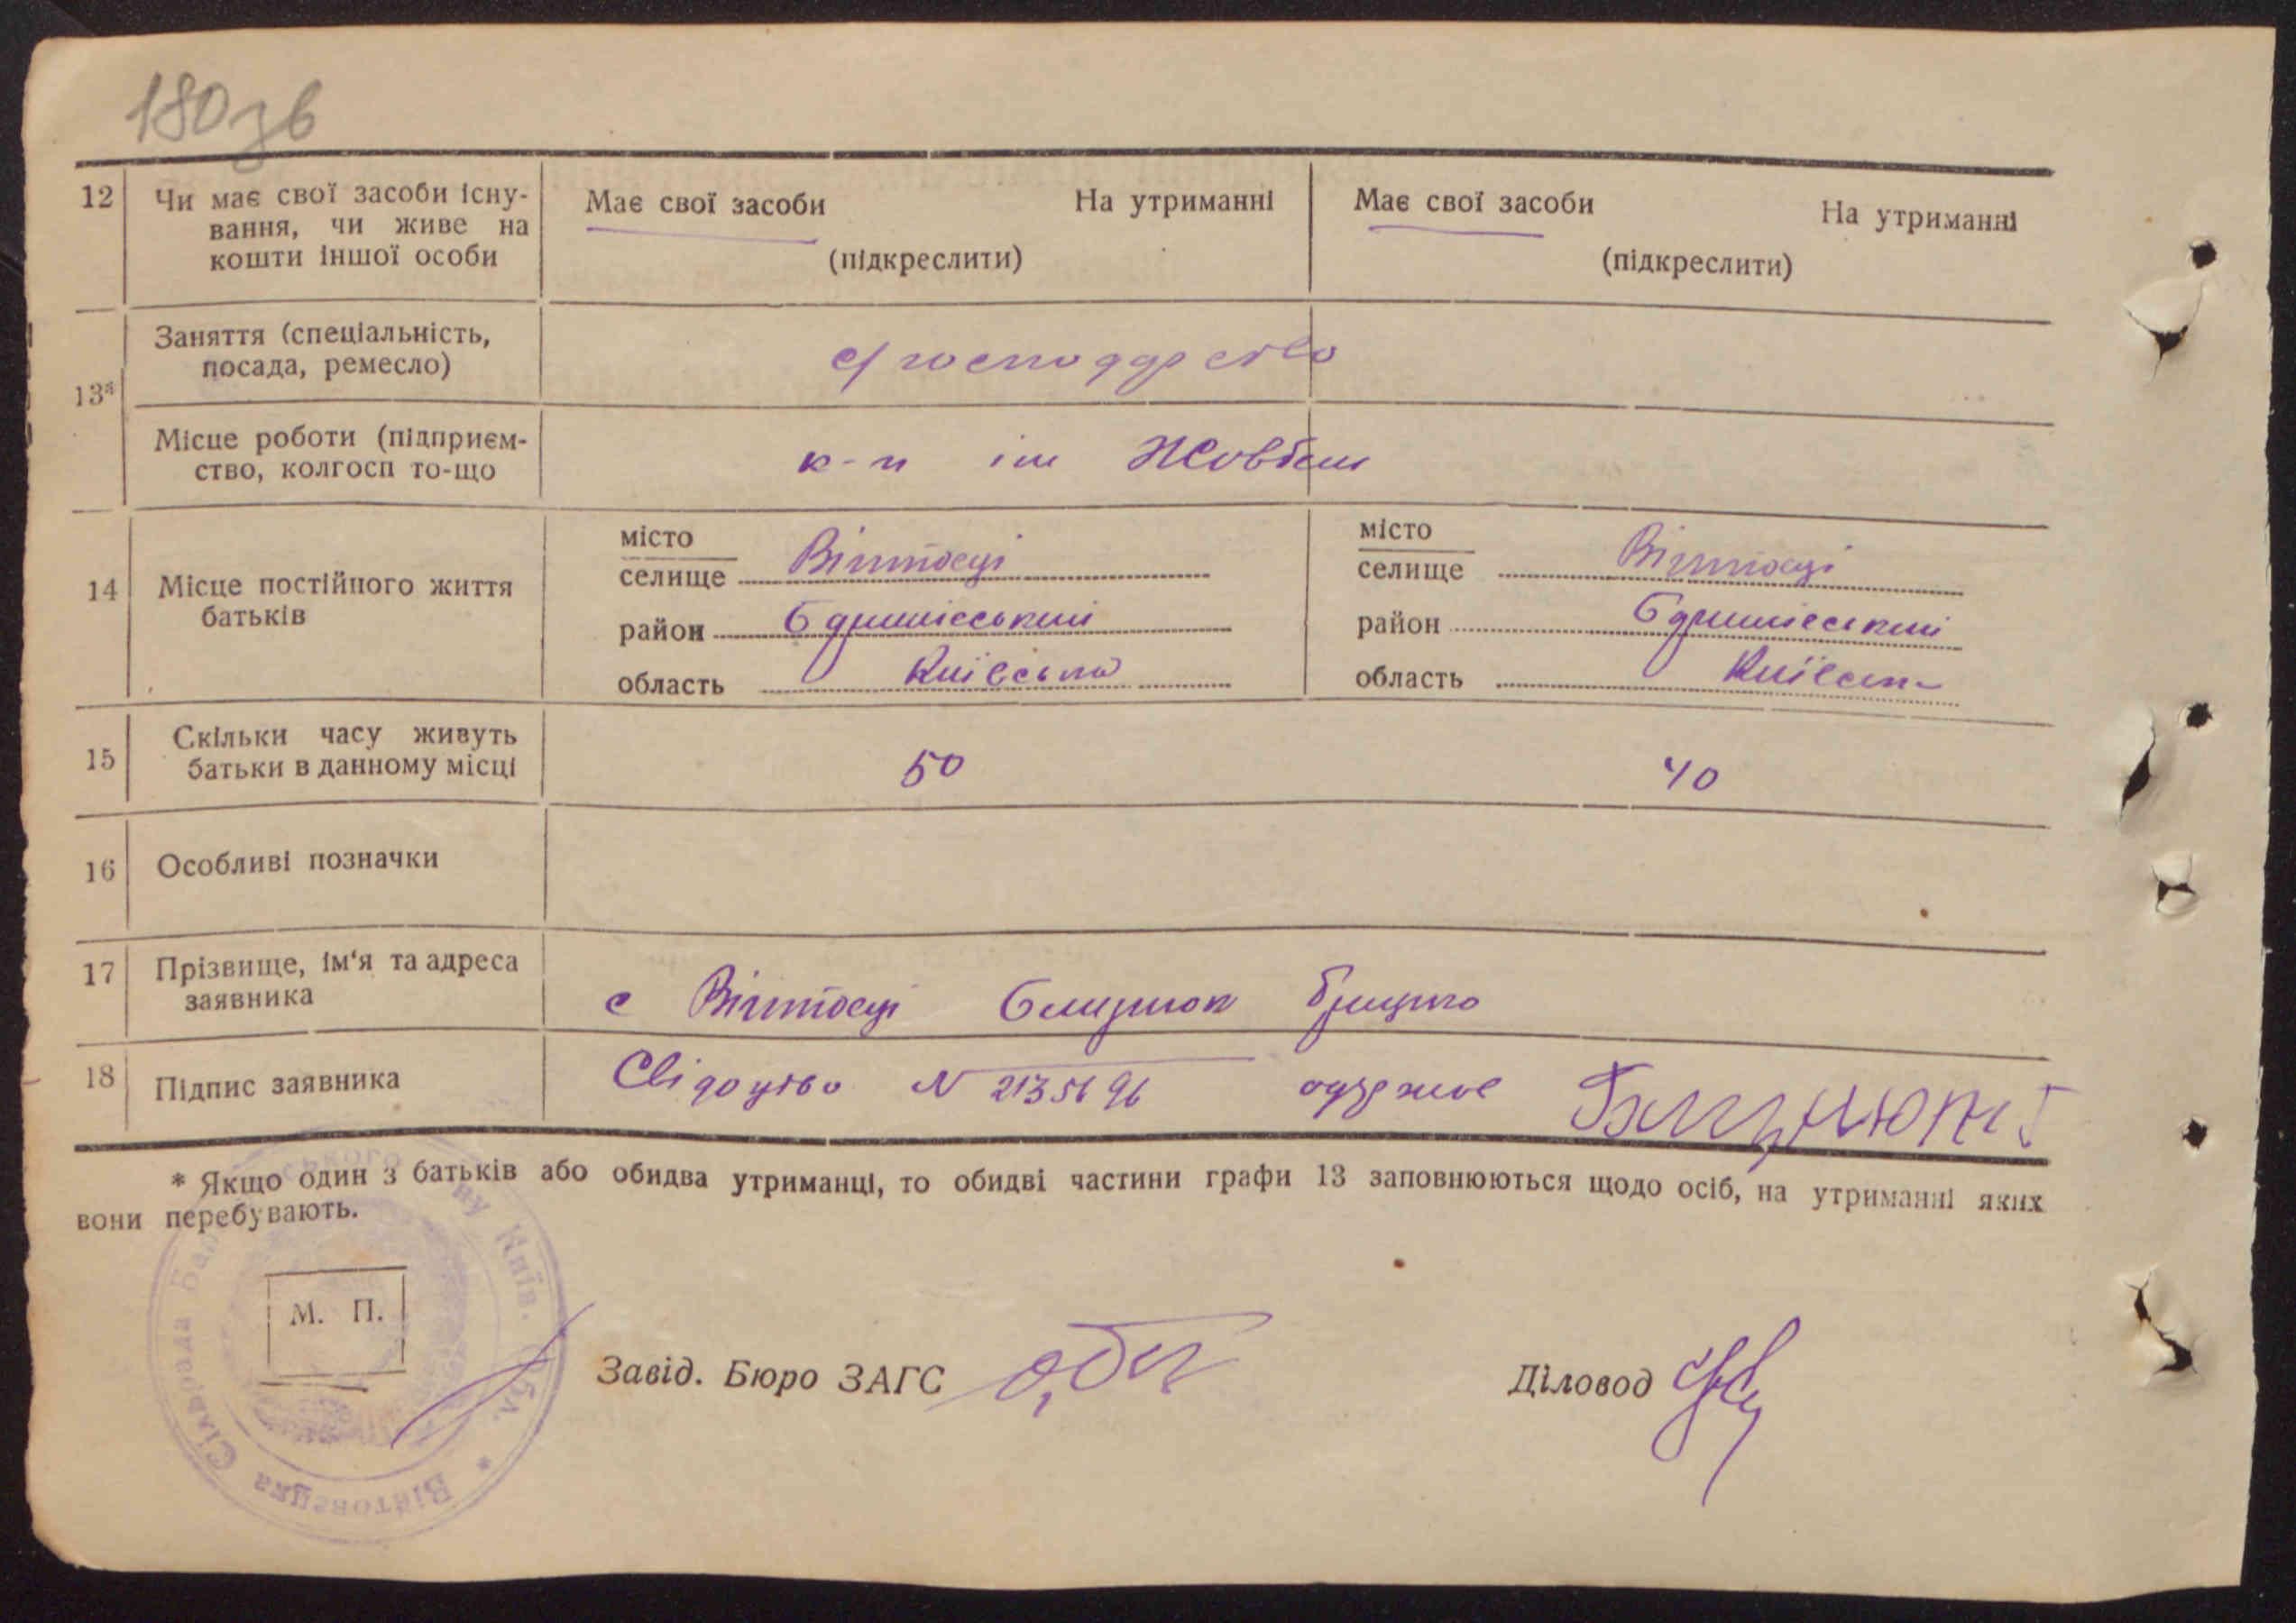 180зв
12 Чи має свої засоби існу- Має свої засоби На утриманні Має свої засоби На утриманні
вання, чи живе на
кошти іншої особи (підкреслити) (підкреслити)
Заняття (спеціальність,
посада, ремесло) с/господарство
13*
Місце роботи (підприєм-
ство, колгосп то-що к-п ім Жовтня
14 Місце постійного життя
батьків
місто
селище Війтовці
район
область Київська
місто
селище Війтовці
район
область Київська
15 Скільки часу живуть
батьки в данному місці 50 40
16 Особливі позначки
17 Прізвище, ім'я та адреса
заявника с Війтовці Грицько
18 Підпис заявника Свідоцтво N 2135696 одержав
* Якщо один з батьків або обидва утриманці, то обидві частини графи 13 заповнюються щодо осіб, на утриманні яких
вони перебувають.
М. П.
Завід. Бюро ЗАГС Діловод
Війтовецка Сільрада Київ. Обл.